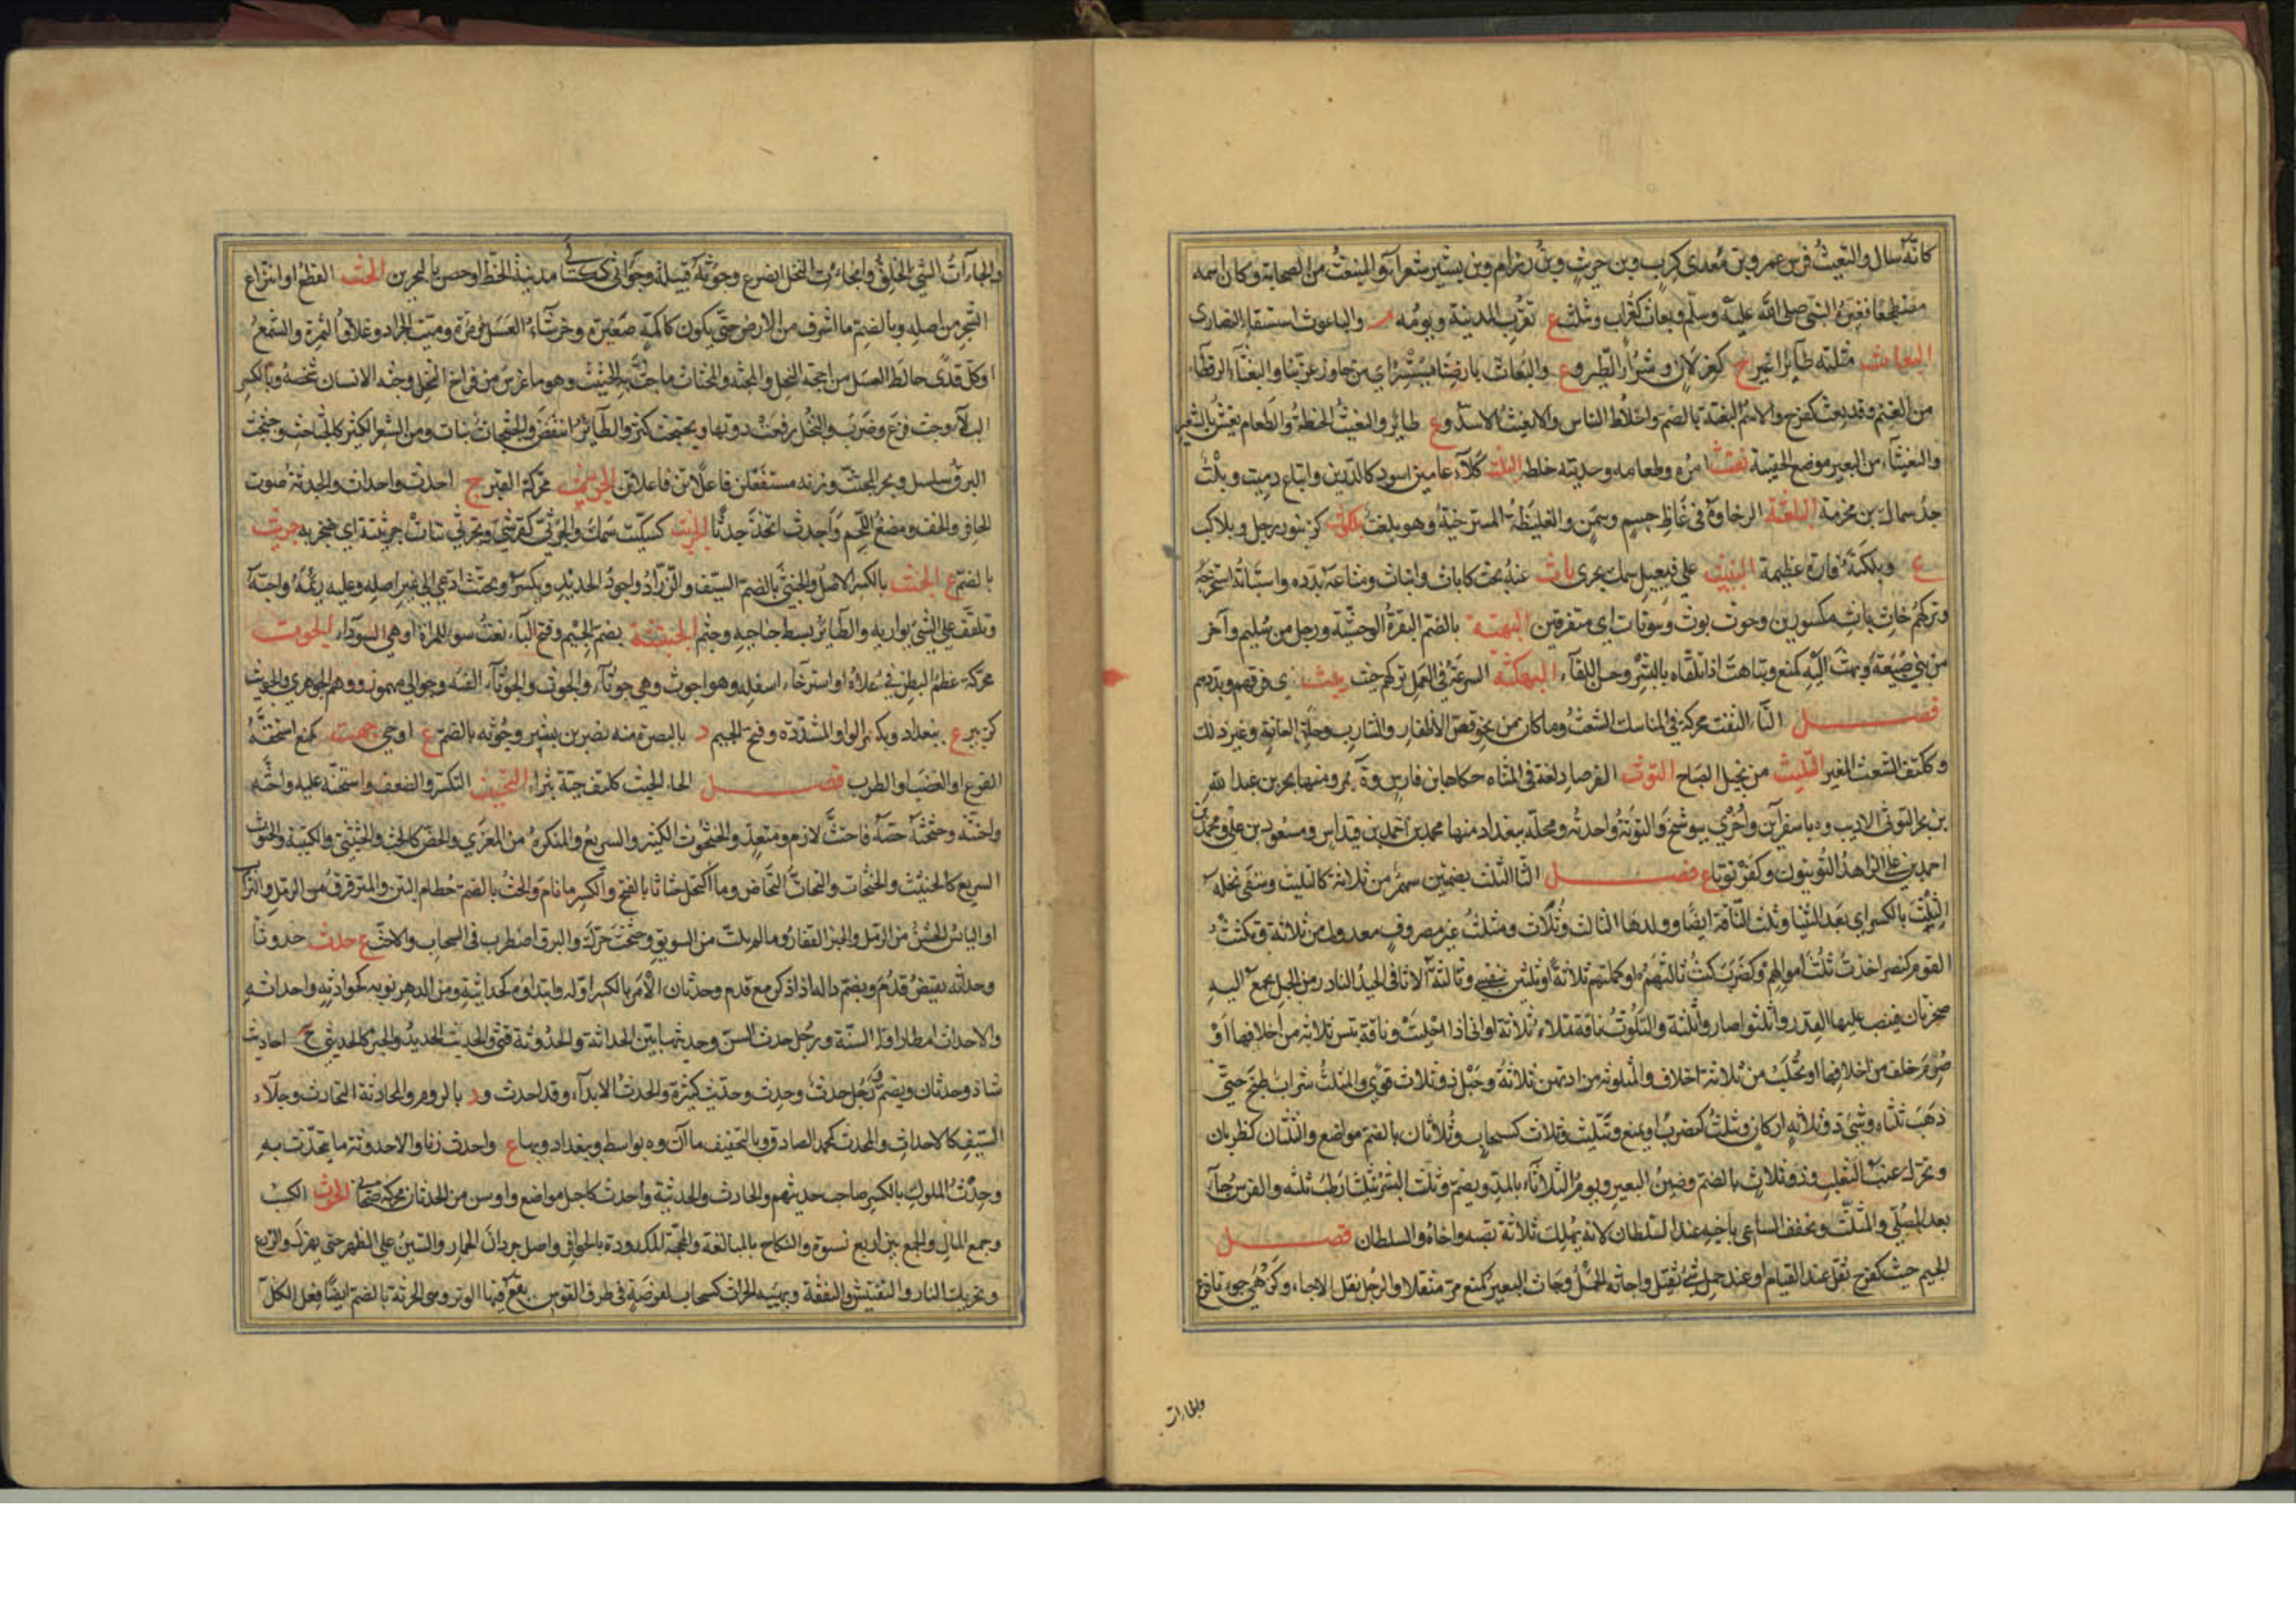 كانه سال والبعيث فرس عمرو بن معدى كرب وبن حريث وبن رزام وبن بشير شعرآء والمنبعث من الصحابة وكان اسمه
مضطجعا فغيره النبى صلى الله عليه وسلم وبعاث كغراب ويثلث ع بقرب المدينة ويومه م والباعوث استسقاء النصارى
البغاث مثلثه طآئر اغبر ج كغزلان وشرار الطير وع والبغاث بارضنا يستنسر اى من جاورنا عز بنا والبغثآء الرقطآء
من الغنم وقد بغث كفرح والاسم البغثة بالضم واخلاط الناس والابغث الاسد وع طائر والبغيث الحنطة والطعام يغش بالشعير
والبغيثآء من البعير موضع الحقيبة امره وطعامه وحديثه خلطه البلث كلآء عامين اسود كالدرين واتباع دميث وبلث
جد سماك بن مخرمة البلغثة الرخاوة فى غلظ جسم وسمن والغليظة المسترخية وهو بلغث بلكوث كزنبور رجل وبلاكث
ع وبلكثة فارة عظيمة البينيث على فيعيل سمك بحرى باث عنه بحث كاباث وابتاث ومتاعه بدده واستباثه استخرجه
وتركهم حاث باث مكسورين وحوث بوث وينونان اى متفرقين البهثة بالضم البقرة الوحشية ورجل من سليم وآخر
من بنى ضبيعة وبهث اليه كمنع وتباهث اذا تلقاه بالبشر وحسن اللقآء البهكثة السرعة فى العمل تركهم حيث بيث اى فرقهم وبددهم
فصل التآء التفث محركة فى المناسك الشعث وما كان من نحو قص الاظفار والشارب وحلق العانة وغير ذلك
وككتف الشعث المغبر التليث من نجيل السباخ التوث الفرصاد لغة فى المثناه حكاها ابن فارس وة بمرو منها بحر بن عبدالله
بن بحر التوثى الاديب وة باسفرآين واخرى ببوشنج والتوثة واحدته ومحلة ببغداد منها محمد بن احمد بن قيداس ومسعود بن على ومحمد بن
احمد بن على الزاهد التوثيون وكفرتوثا ع فصل الثا الثلث بضمتين سهم من ثلاثة كالثليث وسقى نخله
الثلث بالكسر اى بعد الثنيا وثلث الناقة ايضا وولدها الثالث وثلاث ومثلث غير مصروف معدول من ثلاثة وثلثت
القوم كنصر اخذت ثلث اموالهم وكضرب كنت ثالثهم او كملتهم ثلاثة او ثلثين بنفسى وثالثة الاثافى الحيد النادر من الجبل يجمع اليه
صخرتان فينصب عليها القدر واثلثوا صاروا ثلثة والثلوث ناقة تملاء ثلاثة اوانى اذا حلبت وناقة تيبس ثلاثة من اخلافها او
صرم خلف من اخلافها او تحلب من ثلاثة اخلاف والمثلوثه مزادة من ثلاثة وحبل ذو ثلاث قوى والمثلث شراب طبخ حتى
ذهب ثلثاه وشىء ذو ثلاثة اركان وثلث كضرب او يمنع وتثليث وثلاث كسحاب وثلاثان بالضم مواضع والثلثان كظربان
ويحرك عنب الثعلب وذو ثلاث بالضم وضين البعير ويوم الثلاثآء بالمد ويضم وثلث البسر تثليثا ارطب ثلثه والفرس جآء
بعد المصلى والمثلث ويخفف الساعى باخيه عند السلطان لانه يهلك ثلاثة نفسه واخاه والسلطان فصل
الجيم جئث كفرح ثقل عند القيام او عند حمل شىء ثقيل واجاثه الحمل وجاث البعير كمنع مر مثقلا والرجل نقل الاخبار
والجارات
والجاآث الشىء الخلق وانجاءث النخل انصرع وجوثة قبيلة وجوآثى ككسالى مدينة الخط او حصن بالبحرين الجث القطع او انتزاع
الشجر من اصله وبالضم ما اشرف من الارض حتى يكون كاكمة صغيرة وخرشاء العسل ومرة وميت الجراد وغلاف الثمرة والشمع
او كل قذى خالط العسل من اجنحه النحل والمجثه والمجثاث ما جث به الجثيث وهو ما غرس من فراخ النخل وجثة الانسان شخصه وبالكسر
البلآء وجث فزع وضرب والنحل رفعت دويها وتجثجث كثر والطآئر انتفض والجثجاث نبات ومن الشعر الكثير كالجثاجث وجثجث
البرق سلسل وبحر المجتث وزنه مستفعلن فاعلاتن فاعلاتن الجدث محركة القبر ج اجدث واجداث والجدثة صوت
الحافر والخف ومضغ اللحم واجدث اتخذ جدثا الجريث كسكيت سمك والجرثى كقرشى
بالضم ع الجنث بالكسر الاصل والجنثى بالضم السيف والزراد واجود الحديد ويكسر وتجنث ادعى الى غير اصله وعليه رئمه واحبه
وتلفف على الشىء يواريه والطآئر بسط جناحيه وجثم الجنبثة بضم الجيم وفتح البا نعت سوء للمراة او هى السوداء الجوث
محركة عظم البطن فى اعلاه او استرخآء اسفله وهو اجوث وهى جوثآء والجوث والجوثآء القبه وجواثى مهموز ووهم الجوهرى والجويث
كزبير ع ببغداد وبكسر الواو المشدده وفتح الجيم د بالبصرة منه نصر بن بشير وجوثه بالضم ع او حى جهث كمنع استخفه
الفزع او الغضب او الطرب فصل الحا الحبث ككتف حية بتراء التحنيث التكسر والضعف واستحثه عليه واحثه
واحتثه وحثحثه حضه فاحتث لازم ومتعد والحثحوث الكثير والسريع والمنكرة من المعزى والحض كالحث والحثيثى والكتيبة والحثوث
السريع كالحثيث والحثحاث والتحاث التحاض وما اكتحل حثاثا بالفتح والكسر ما نام والحث بالضم حطام التبن والمترقرق من الرمل والتراب
او اليابس الخشن من الرمل والخبز القفار وما لم يلت من السويق وحثحث حركه والبرق اضطرب فى السحاب والاحث ع حدث حدوثا
وحداثه نقيض قدم ويضم داله اذا ذكر مع قدم وحدثان الامر بالكسر اوله وابتداوه كحداثته ومن الدهر نوبه كحوادثه واحداثه
والاحداث امطار اول السنة ورجل حدث السن وحديثها بين الحداثة والحدوثة فتى والحديث الجديد والخبر كالحديثى ج احاديث
شاذ وحدثان ويضم ورجل حدث وحدث وحديث كثيره والحدث الابدآء وقد احدث ود بالروم والمحادثة التحادث وجلآء
السيف كالاحداث والمحدث كمحمد الصادق وبالتخفيف مآآن وه بواسط وببغداد وبهاء ع واحدث زنا والاحدوثة ما يتحدث به
وحدث الملوك بالكسر صاحب حديثهم والحادث والحديثة واحدث كاجبل مواضع واوس بن الحدثان محركة صحابى الحرث الكسب
وجمع المال والجمع بين اربع نسوة والنكاح بالمبالغة والمحجة المكدودة بالحوافر واصل جردان الحمار والسير على الظهر حتى يهزل والزرع
وتحريك النار والتفتيش والتفقه وتهيئة الحراث كسحاب لفرضة فى طرف القوس يقع فيها الوتر وهى الحرثة بالضم ايضا وفعل الكل